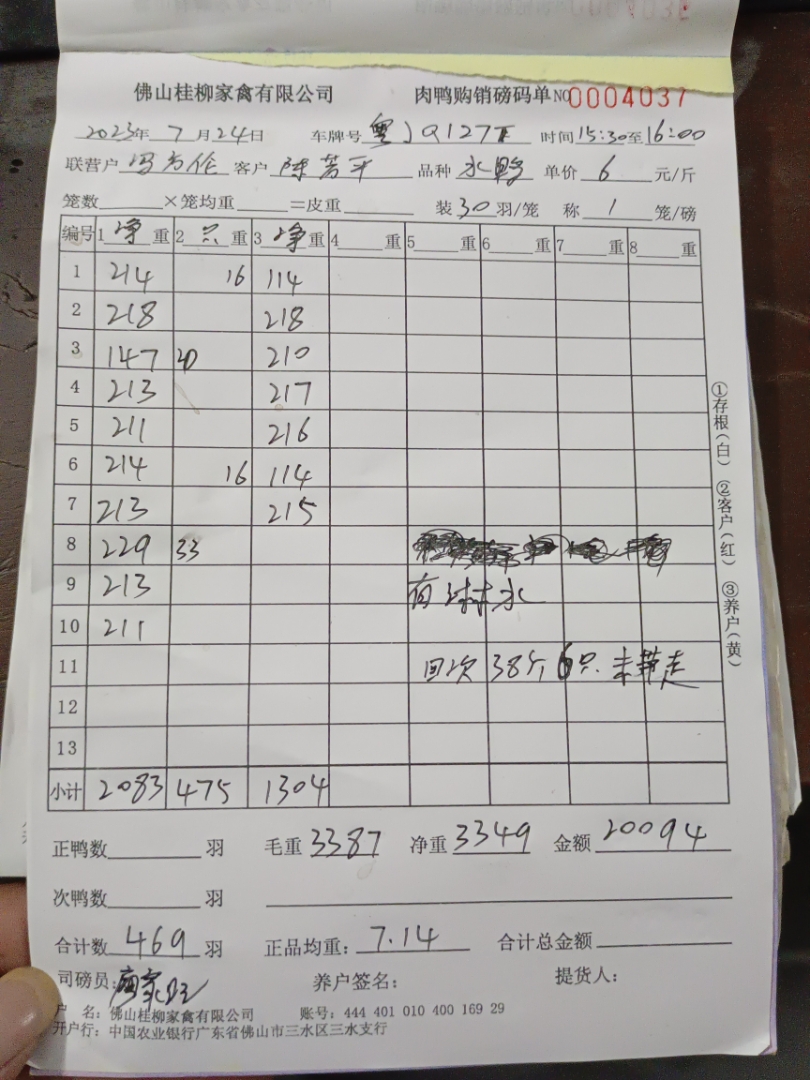 佛山桂柳家禽有限公司 肉鸭购销磅码单 NO 0004037
2023年 7月24日 车牌号 粤JQ127 时间15:30至16:00
联营户 冯 客户 陈 平 品种 水鸭 单价 6 元/斤
笼数 ×笼均重 =皮重 装30羽/笼 称 1 笼/磅
编号 1净重 2只重 3净重 4重 5重 6重 7重 8重
1 214 16 114
2 218 218
3 147 20 210
4 213 217
5 211 216
6 214 16 114
7 213 215
8 229 33
9 213
有 水
10 211
11 回次 38斤 6只 未带走
12
13
小计 2083 475 1304
正鸭数 羽 毛重 3387 净重 3349 金额 20094
次鸭数 羽
合计数 469 羽 正品均重: 7.14 合计总金额
司磅员: 养户签名: 提货人:
户 名: 佛山桂柳家禽有限公司 账号: 444 401 010 400 169 29
开户行: 中国农业银行广东省佛山市三水区三水支行
①存根(白) ②客户(红) ③养户(黄)